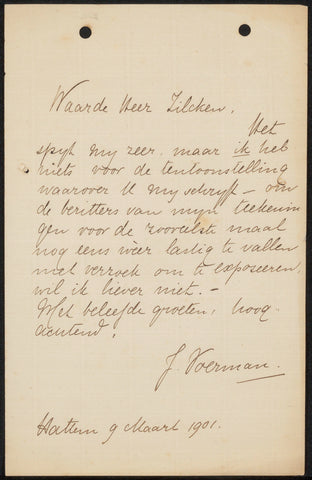 Waarde Heer Zilcken,
Het
spyt my zeer. maar ik heb
niets voor de tentoonstelling
waarover U my schryft – om
de bezitters van myn teekenin
gen voor de zooveelste maal
nog eens weer lastig te vallen
met verzoek om te exposeeren,
wil ik liever niet. –
Met beleefde groeten, hoog-
achtend,
J. Voerman.
Hattem 9 Maart 1901.